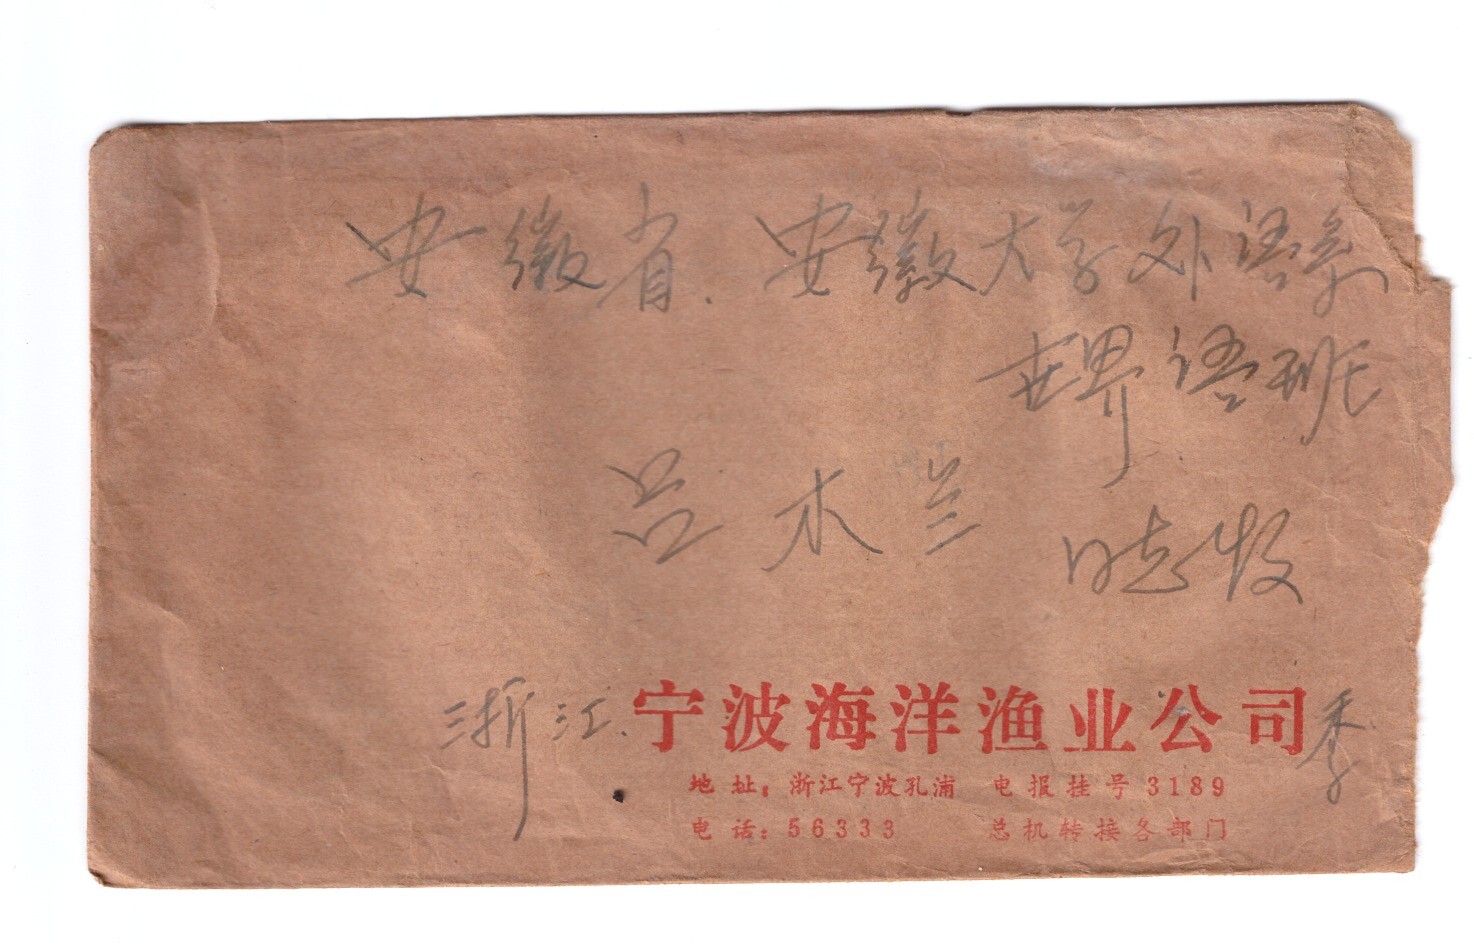 安徽省.安徽大学外语系
世界语班
吕木兰
收
浙江.宁波海洋渔业公司季
地址：浙江宁波孔浦 电报挂号3189
电话：56333 总机转接各部门